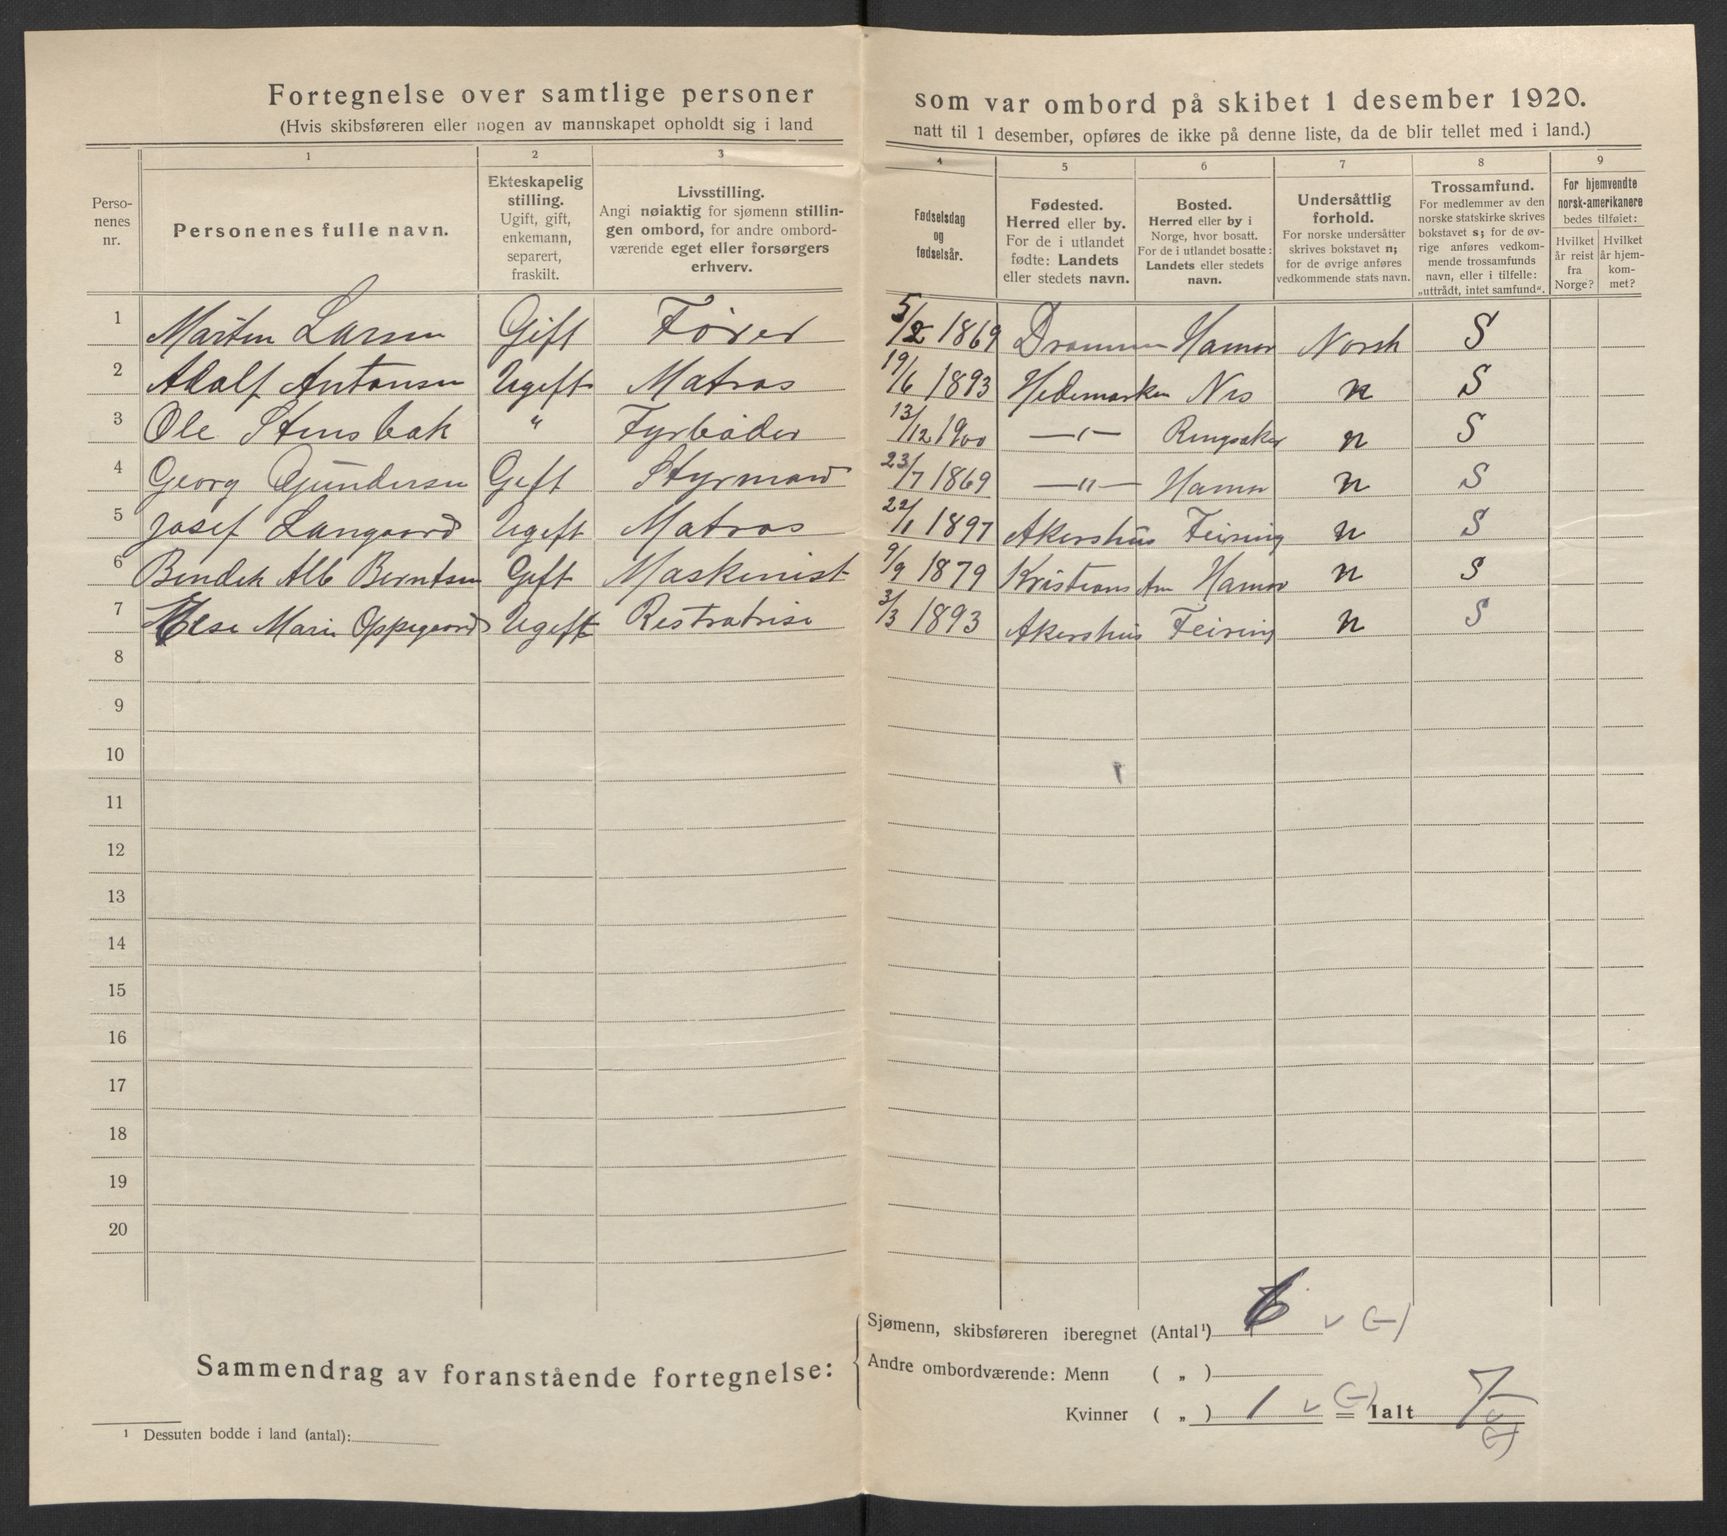 Fortegnelse over samtlige personer som var ombord på skibet 1 desember 1920.
(Hvis skibsføreren eller nogen av mannskapet opholdt sig i land natt til 1 desember, opføres de ikke på denne liste, da de blir tellet med i land.)
1 2 3 4 5 6 7 8 9
Perso-
nenes
nr.
Personenes fulle navn.
Ekteskapelig
stilling.
Ugift, gift,
enkemann,
separert,
fraskilt.
Livsstilling.
Angi nøiaktig for sjømenn stillin-
gen ombord, for andre ombord-
værende eget eller forsørgers
erhverv.
Fødselsdag
og
fødselsår.
Fødested.
Herred eller by.
For de i utlandet
fødte: Landets
eller stedets navn.
Bosted.
Herred eller by i
Norge, hvor bosatt.
For de i utlandet bosatte:
Landets eller stedets
navn.
Undersåttlig
forhold.
For norske undersåtter
skrives bokstavet n;
for de øvrige anføres
vedkommende stats navn.
Trossamfund.
For medlemmer av den
norske statskirke skrives
bokstavet s; for de øv-
rige anføres vedkom-
mende trossamfunds
navn, eller i tilfelle:
„uttrådt, intet samfund".
For hjemvendte
norsk-amerikanere
bedes tilføiet:
Hvilket
år reist
fra
Norge?
Hvilket
år hjem-
kom-
met?
1 Martin Larsen Gift Fører 5/2 1869 Drammen Hamar Norsk S
2 Adolf Antonsen Ugift Matros 19/6 1893 Hedemarken Nes n S
3 Ole Stensbak " Fyrbøder 13/12 1900 —"— Ringsaker n S
4 Georg Gundersen Gift Styrmand 23/7 1869 —"— Hamar n S
5 Josef Langaard Ugift Matros 22/1 1897 Akershus Feiring n S
6 Bendek Alb Berntsen Gift Maskinist 9/9 1879 Kristians Am Hamar n S
7 Else Marie Oppegaard Ugift Restratrise 3/3 1893 Akershus Feiring n S
8
9
10
11
12
13
14
15
16
17
18
19
20
Sammendrag av foranstående fortegnelse:
Sjømenn, skibsføreren iberegnet (Antal¹) 6 v (-)
Andre ombordværende: Menn ( „ )
Kvinner ( „ ) 1 v (-) = Ialt 7
v
(-)
¹ Dessuten bodde i land (antal):